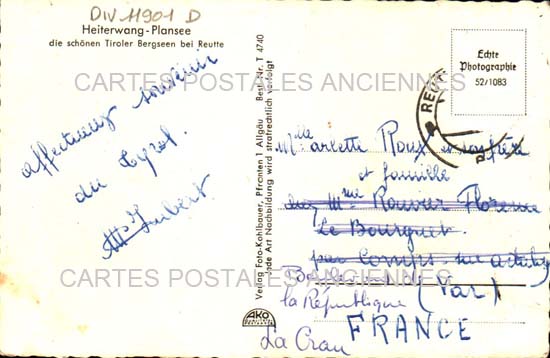 DIV 11901 D
Heiterwang-Plansee
die schönen Tiroler Bergseen bei Reutte
affectueux souvenir
du Tyrol.
Imbert
Verlag Foto-Kohlbauer, Pfronten 1 Allgäu Best.-Nr. T 4740
Jede Art Nachbildung wird strafrechtlich verfolgt
AKO
Echte
Photographie
52/1083
REU
Mlle Arlette Roux
et famille
chez Mme Rouvier Florence
Le Bourguet
par Comps
la République
(Var)
La Crau
FRANCE
CARTES POSTALES ANCIENNES
CARTES POSTALES ANCIENNES